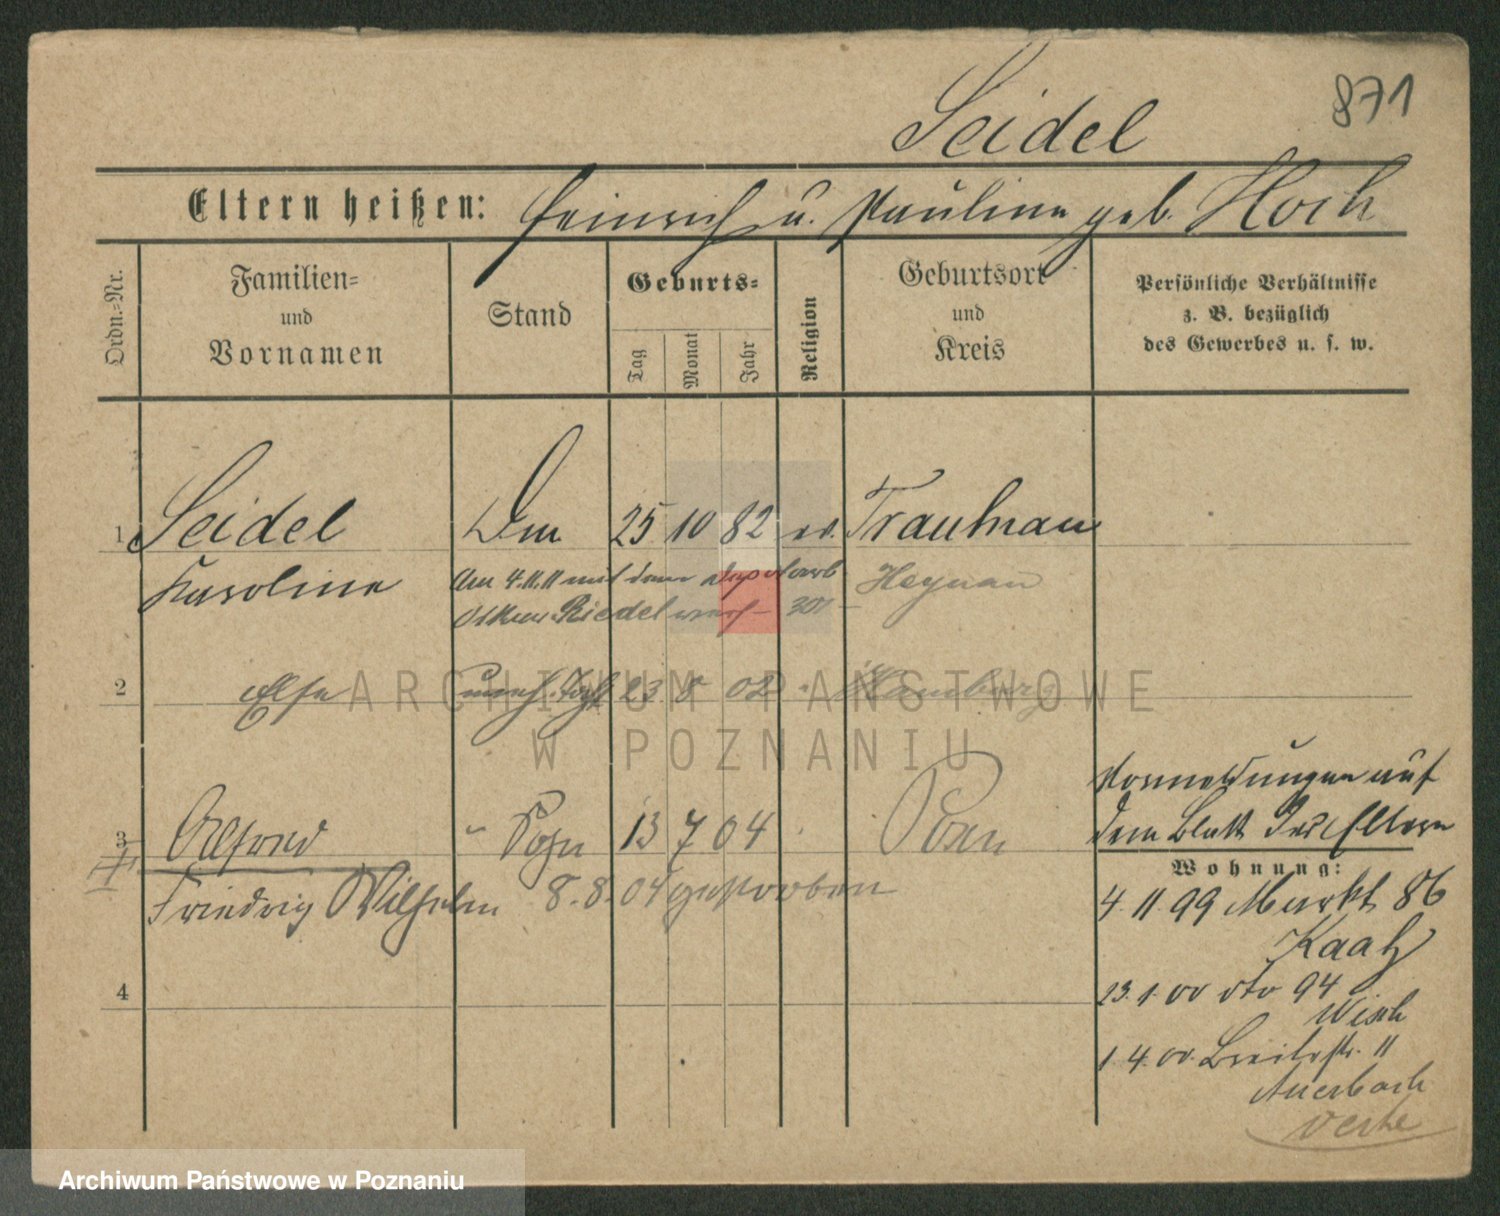 871
Seidel
Eltern heißen: Heinrich u. Pauline geb. Hoch
Ordn.-Nr.
Familien-
und
Vornamen
Stand
Geburts-
Tag
Monat
Jahr
Religion
Geburtsort
und
Kreis
Persönliche Verhältnisse
z. B. bezüglich
des Gewerbes u. s. w.
1 Seidel 25 10 82 ev.
Karoline
Am 4.11.11 mit dem
Riedel
2 Else unehl. Tocht 23 8 02 Hamburg
3 Alfred " Sohn 13 7 04 Posen
Friedrich Wilhelm 8.8.04 gestorben
4
Vormeldungen auf
dem Blatt der Eltern
Wohnung:
4. 11. 99 Markt 86
Kaatz
23. 1. 00 dto 94
Wisch
1. 4. 00. Breitestr. 11
Auerbach
ARCHIWUM PAŃSTWOWE
W POZNANIU
Archiwum Państwowe w Poznaniu